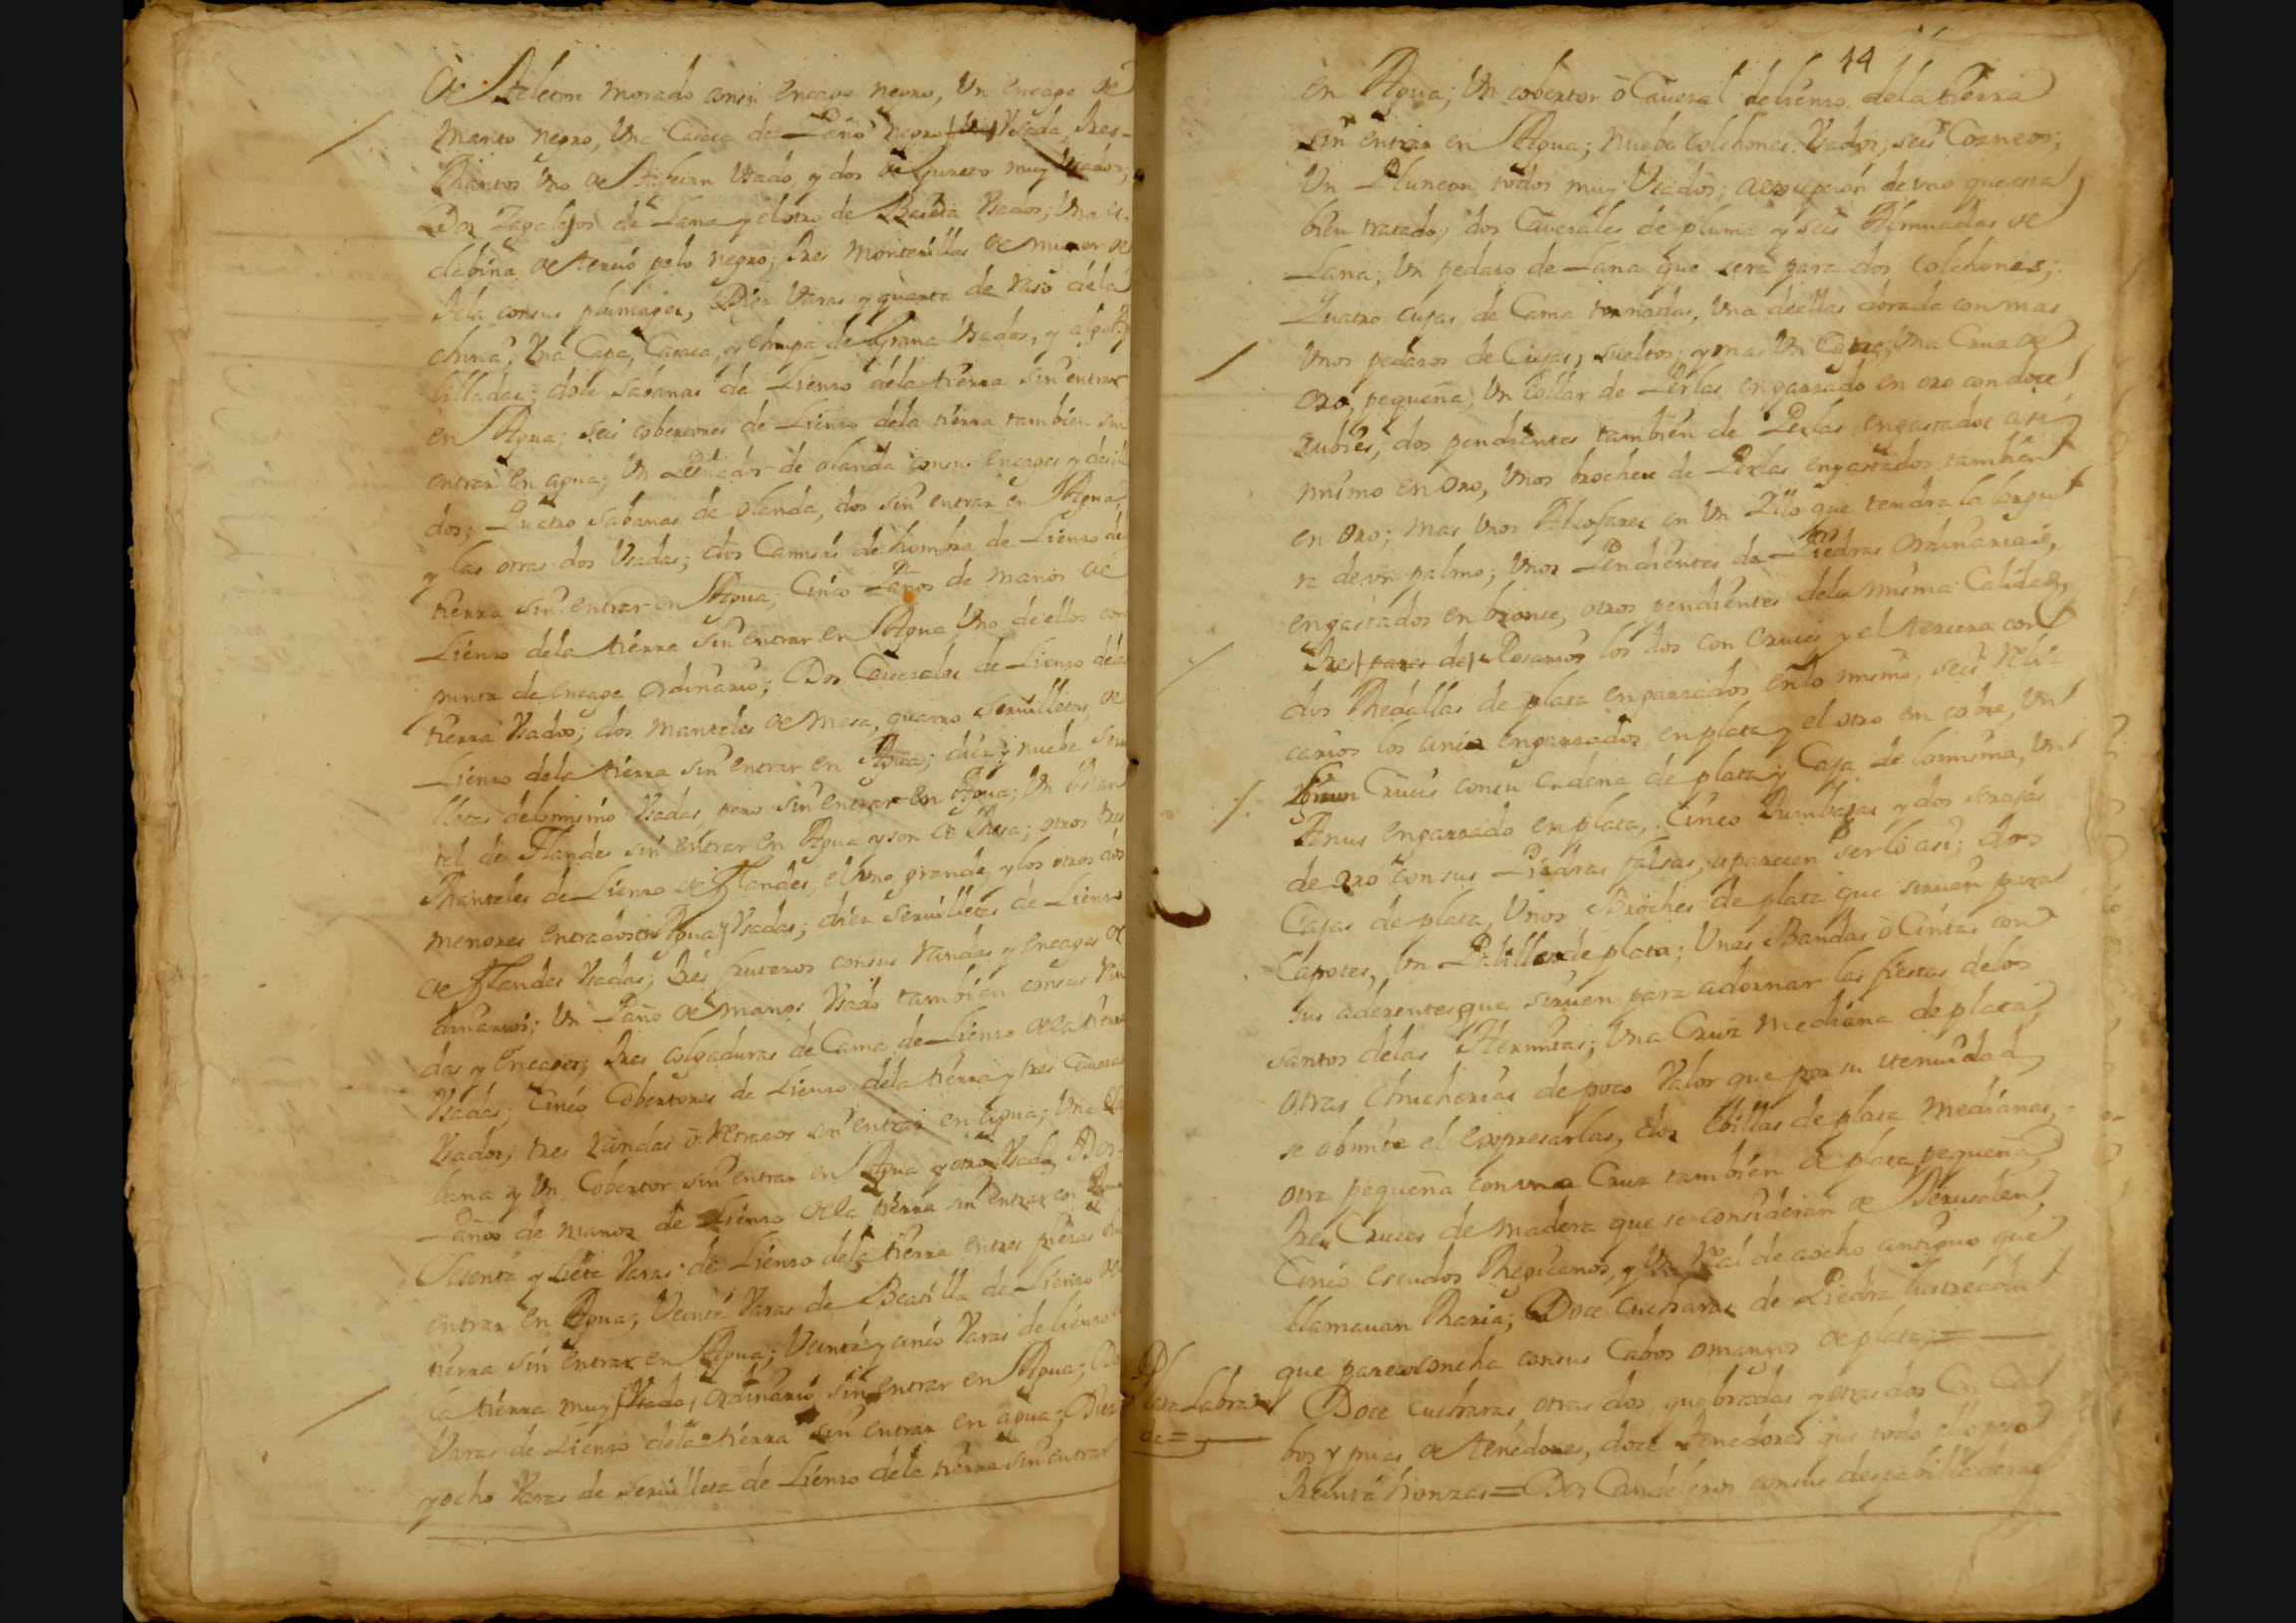 de morado con su encage negro, Un encage de
manto negro, Una Casaca de Paño negro Usada, Tres
Mantos Uno de Usado, y dos de muy Usados;
Dos Zagalejos de Lana y el otro de Baieta Usados; Una es-
clabina de terció pelo negro; Tres Monterillas de muger de
tela con sus plumages, Diez Varas y quarta de Raso dela
china; Una Capa, Casaca, y chupa de Grana Usados, y algo
lilladas; doce sabanas de Lienzo dela tierra sin entrar
en Agua; seis cobertores de Lienzo dela tierra tambien sin
entrar en agua; Un Peinador de olanda con sus encages y
dos; Quatro sabanas de olanda, dos sin entrar en Agua,
y las otras dos Usadas; dos Camisas de hombre de Lienzo de
tierra sin entrar en Agua; Cinco Paños de manos de
Lienzo dela tierra sin entrar en Agua, Uno de ellos con
punta de encage ordinario; Dos Cauezales de Lienzo dela
tierra Usados; dos manteles de mesa, quatro seruilletas, de
Lienzo dela tierra sin entrar en Agua; diez y nuebe serui
lletas delo mismo Usadas, pero sin entrar en Agua; Un Man
tel de Flandes sin entrar en Agua y son de Mesa; otros tres
Manteles de Lienzo de Flandes, el uno grande, y los otros dos
menores entrados en Agua y Usadas; diez seruilletas de Lienzo
de Flandes Usadas; Tres fruteros con sus randas y encages or
dinarios; Un Paño de manos Usado tambien con sus Ran
das y encages; Tres colgaduras de Cama de Lienzo dela tierra
Usadas; Cinco Cobertores de Lienzo dela tierra y tres Caueza
Usados; tres randas ò retrasos sin entrar en agua; Una
bana y Un Cobertor sin entrar en Agua y otro Usado, Dos
Paños de manos de Lienzo dela tierra sin entrar en Agua
y siete Varas de Lienzo dela tierra en tres piezas sin
entrar en Agua; Veinte Varas de Beatilla de Lienzo de
tierra sin entrar en Agua; Veinte y cinco Varas de lienzo
la tierra muy Usado ordinario sin entrar en Agua;
Varas de Lienzo dela tierra sin entrar en agua; Diez
y ocho Varas de seruilleta de Lienzo dela tierra sin entrar
44
en Agua; Un cobertor ò Caueзal de lienzo dela tierra
sin entrar en Agua; nuebe colchones Usados; seis
Un Plumeon todos muy Usados; acsepcion de uno que esta
bien tratado; dos Cauezales de pluma y seis Almuadas de
Lana; Un pedazo de Lana que sera para dos colchones;
Quatro cujas de Cama torneadas, Una de ellas dorada con mas
Unos pedazos de Cujas, sueltos; y mas Un Catre; Una Cruz de
oro, pequeña, Un Collar de Perlas engarzado en oro con doce
rubies; dos pendientes tambien de Perlas engastados asi
mismo en oro, Unos broches de Perlas engastados tambien
en oro; mas Unos Aljofares en Un Ilo que tendra la largu
ra de un palmo; Unos Pendientes de Piedras ordinarias,
engastados en bronce, otros pendientes dela misma Calidad,
Tres pares de Rosarios los dos con cruces y el tercero con
dos Medallas de plata engarzados en lo mismo, seis Reli-
carios los cinco engarzados en plata y el otro en cobre, Un
Lignum Crucis con su cadena de plata y Caja de lo misma, Un
Agnus engarzado en plata, Cinco Tumbagas y dos sortijas
de oro con sus Piedras falsas, o parecen serlo asi; dos
Cajas de plata, Unos Broches de plata que siruen para
Capotes, Un Palillero de plata; Unas Bandas ò Cintas con
sus aderentes que siruen para adornar las fiestas delos
santos delas Hermitas; Una Cruz mediana de plata,
otras chucherias de poco Valor que por su tenuidad,
se obmite el expresarlas, dos Ebillas de plata medianas,
otra pequeña con una Cruz tambien de plata pequeña,
Tres Cruces de madera que se consideran de Jerusalen,
Cinco escudos Megicanos, y Un Real de aocho antiguo que
llamauan Maria; Doce Cucharas de Piedra
que parece concha con sus Cabos o mangos de plata; =
Plata Labra
da =
Doce cucharas, otras dos quebradas y otras dos Ca
bos y puas de tenedores, doce tenedores que todo ello peso
Treinta honzas = Dos Candeleros con sus despabiladeras